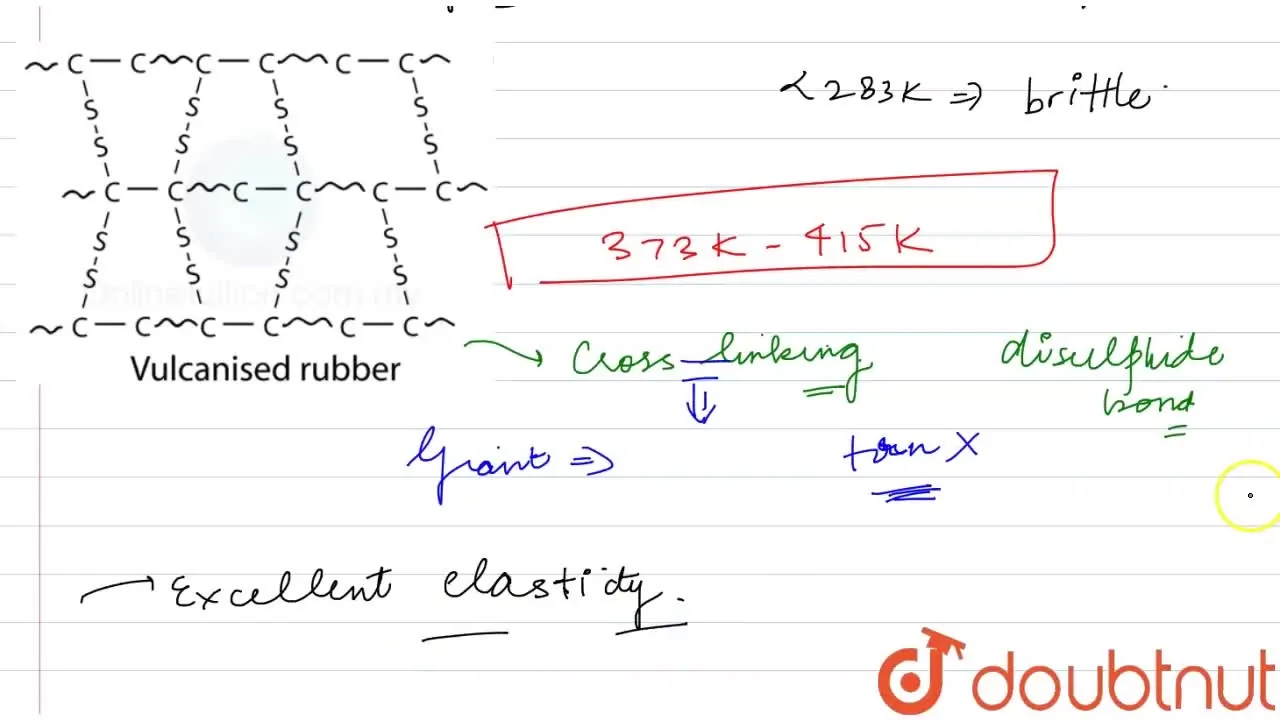 ~ C — C ~ C — C ~ C — C ~
S S S S
S S S S
~ C — C ~ C — C ~ C — C ~
S S S S
S S S S
~ C — C ~ C — C ~ C — C ~
Vulcanised rubber
<283K ⇒ brittle.
373K - 415K
Cross linking disulphide
bond
⇒
X
Excellent elasticity.
doubtnut